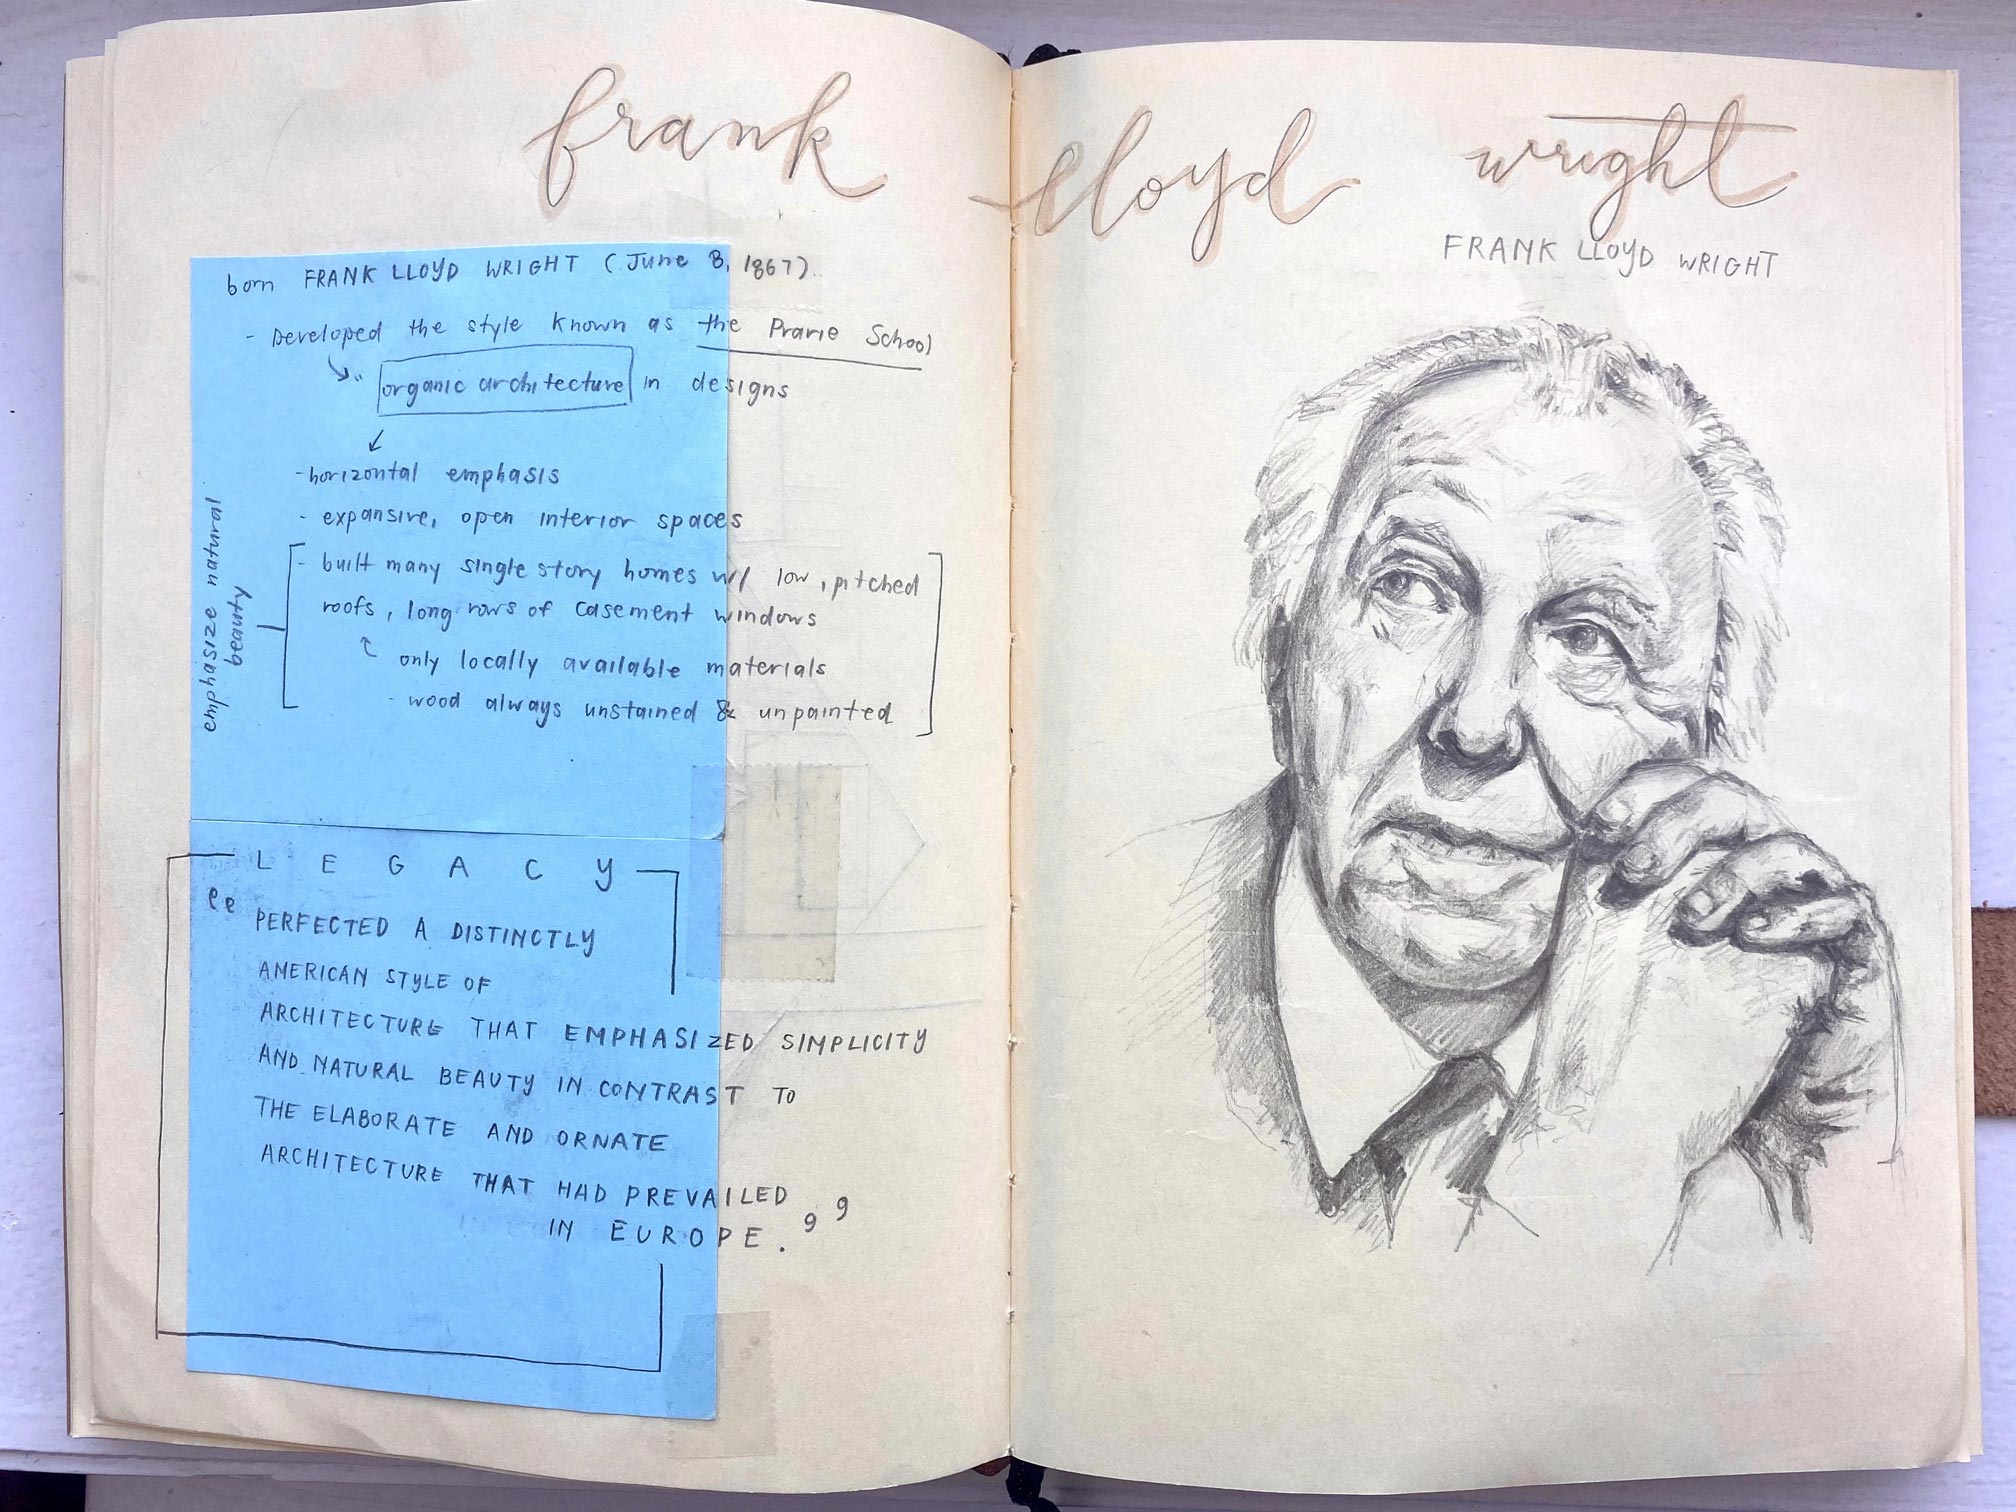 frank lloyd wright
FRANK LLOYD WRIGHT
born FRANK LLOYD WRIGHT (June 8, 1867).
- Developed the style known as the Prarie School
organic architecture in designs
- horizontal emphasis
- expansive, open interior spaces
- built many single story homes w/ low, pitched
roofs, long rows of casement windows
only locally available materials
- wood always unstained & unpainted
emphasize natural
beauty
LEGACY
"PERFECTED A DISTINCTLY
AMERICAN STYLE OF
ARCHITECTURE THAT EMPHASIZED SIMPLICITY
AND NATURAL BEAUTY IN CONTRAST TO
THE ELABORATE AND ORNATE
ARCHITECTURE THAT HAD PREVAILED
IN EUROPE."